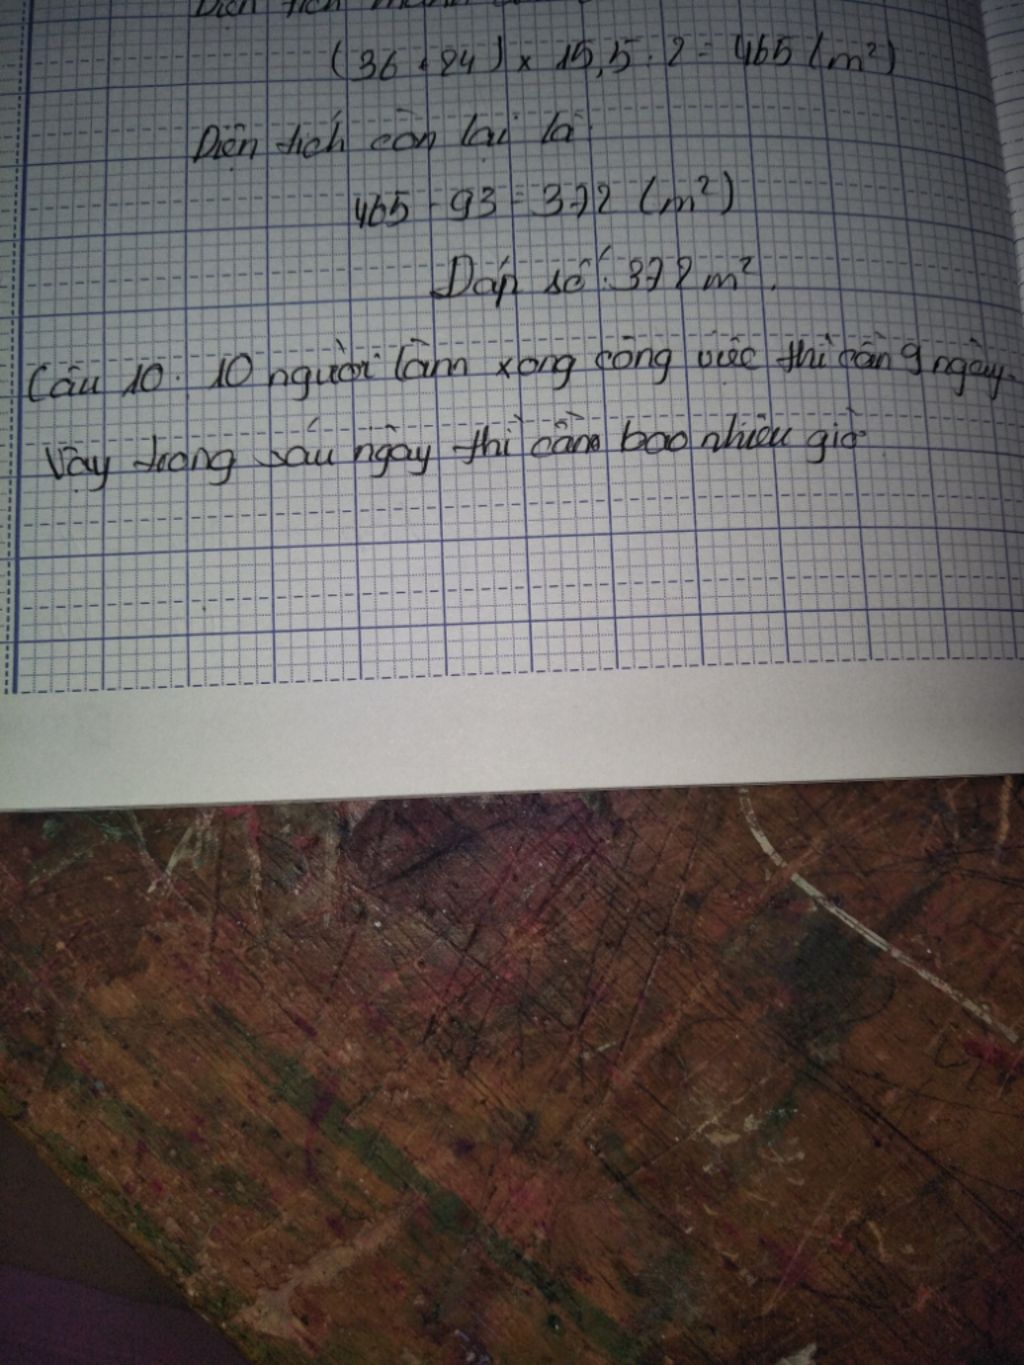 Diện tích mảnh
(36 + 24) x 15,5 : 2 = 465 (m²)
Diện tích còn lại là:
465 - 93 = 372 (m²)
Đáp số: 372 m².
Câu 10: 10 người làm xong công việc thì cần 9 ngày.
Vậy trong sáu ngày thì cần bao nhiêu giờ